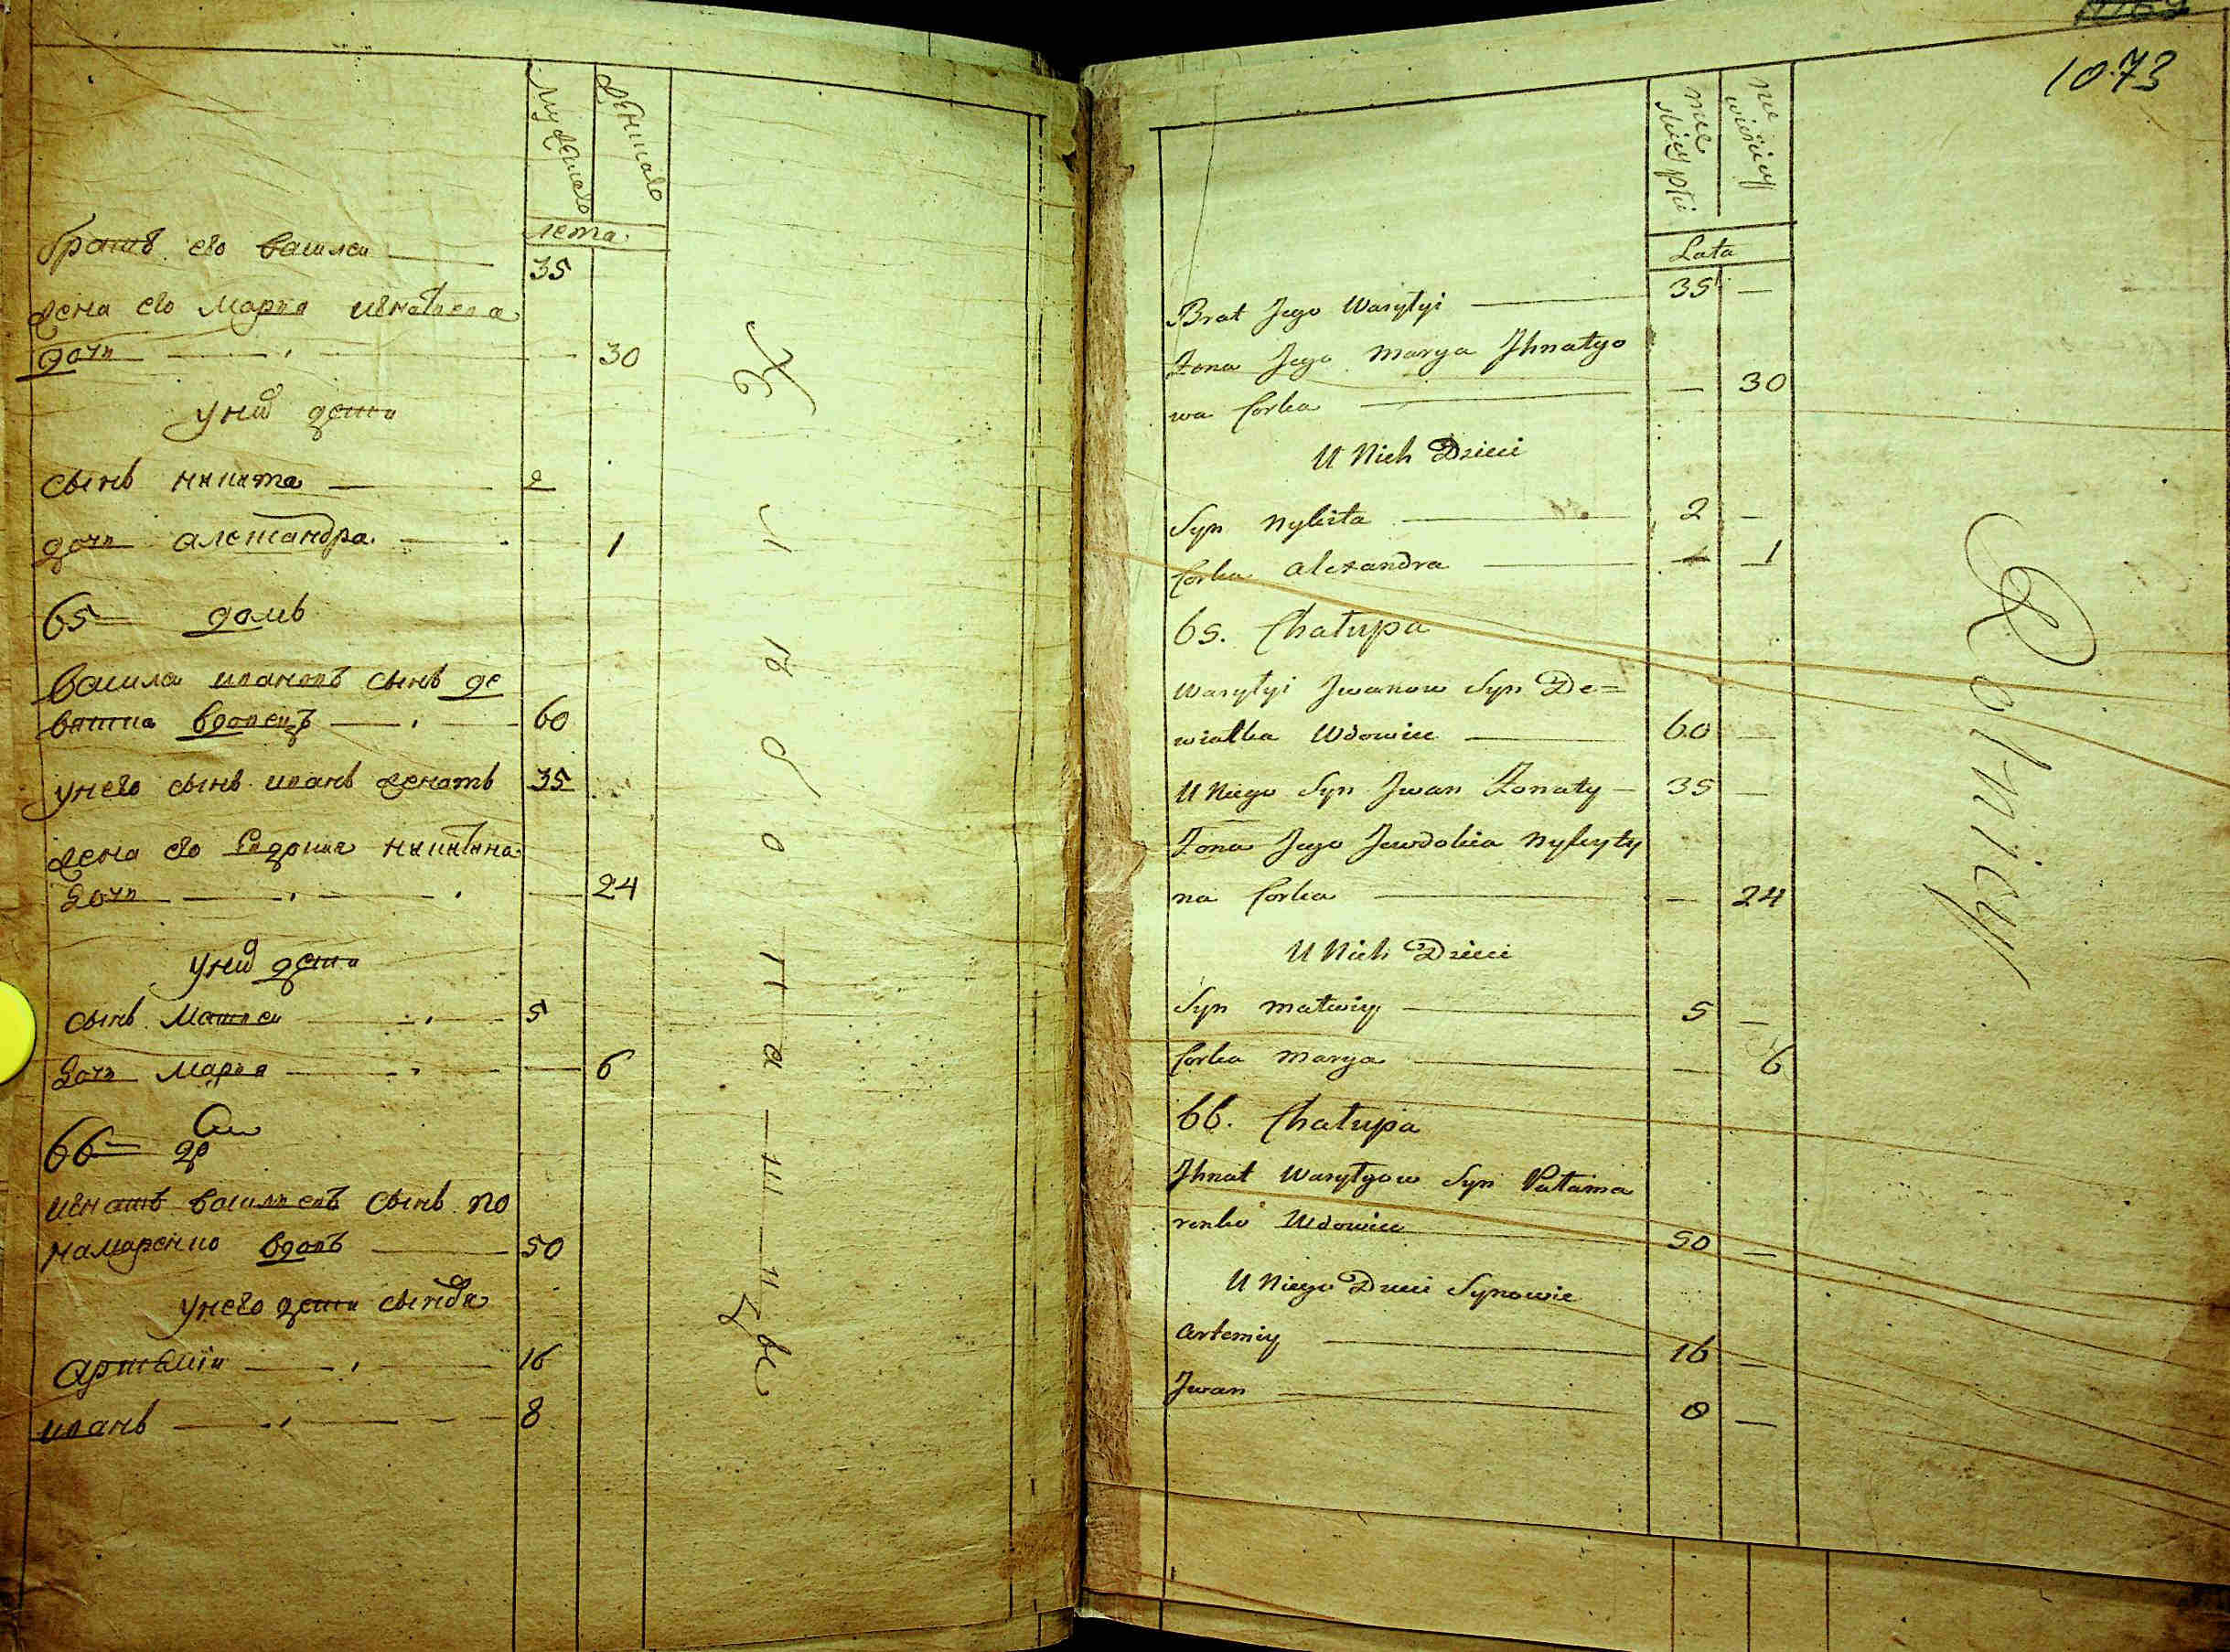 мужеска
женска
лета
братъ его василеи 35
жена его марья игнатьева
дочь 30
у них дети
сынъ никита 2
дочь александра 1
65 домъ
василь ивановъ сынъ де
вятка вдовецъ 60
у него сынъ иванъ женатъ 35
жена его Евдокия никитина
дочь 24
у них дети
сынъ Матвеи 5
дочь Марья 6
66
игнатъ васильевъ сынъ по
намаренко вдовъ 50
у него дети сыновя
артемiи 16
иванъ 8
1073
Lata
Brat Jego Wasylyi 35 —
Żona Jego Marya Jhnatyo
wa Corka — 30
U Nich Dzieci
Syn Nykita 2 —
Corka Alexandra — 1
65. Chałupa
Wasylyi Jwanow Syn De=
wiatka Wdowiec 60 —
U Niego Syn Jwan Żonaty — 35 —
Żona Jego Jewdokia Nykyty
na Corka — 24
U Nich Dzieci
Syn Matwiy 5 —
Corka Marya — 6
66. Chałupa
Jhnat Wasylyow Syn Patama
renko Wdowiec 50 —
U Niego Dzieci Synowie
Artemiy 16 —
Jwan 8 —
Rolnicy